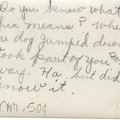 Do you know what
this means? When
the dog jumped down
took part of you
way. Ha, but did
know it.